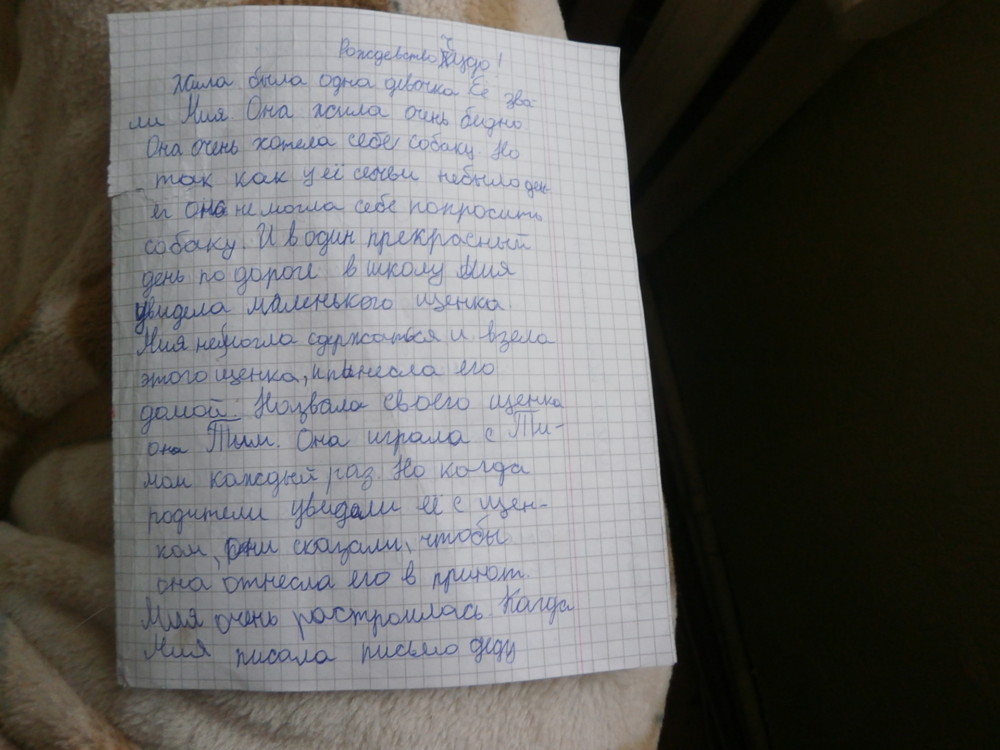 Рождевство Чудо!
Жила была одна девочка Её зва-
ли Мия Она жила очнь бидно
Она очень хотела себе собаку. Но
так как у её семьи небыло ден
ег она не могла себе попросить
собаку. И в один прекрасный
день по дороге в школу Мия
увидела маленького щенка
Мия немогла сдержаться и взела
этого щенка, и принесла его
домой. Назвала своего щенка
она Тим. Она играла с Ти-
мом каждый раз. Но когда
родители увидали её с щен-
ком, они сказали, чтобы
она отнесла его в приют.
Мия очень растроилась. Кагда
Мия писала письмо деду